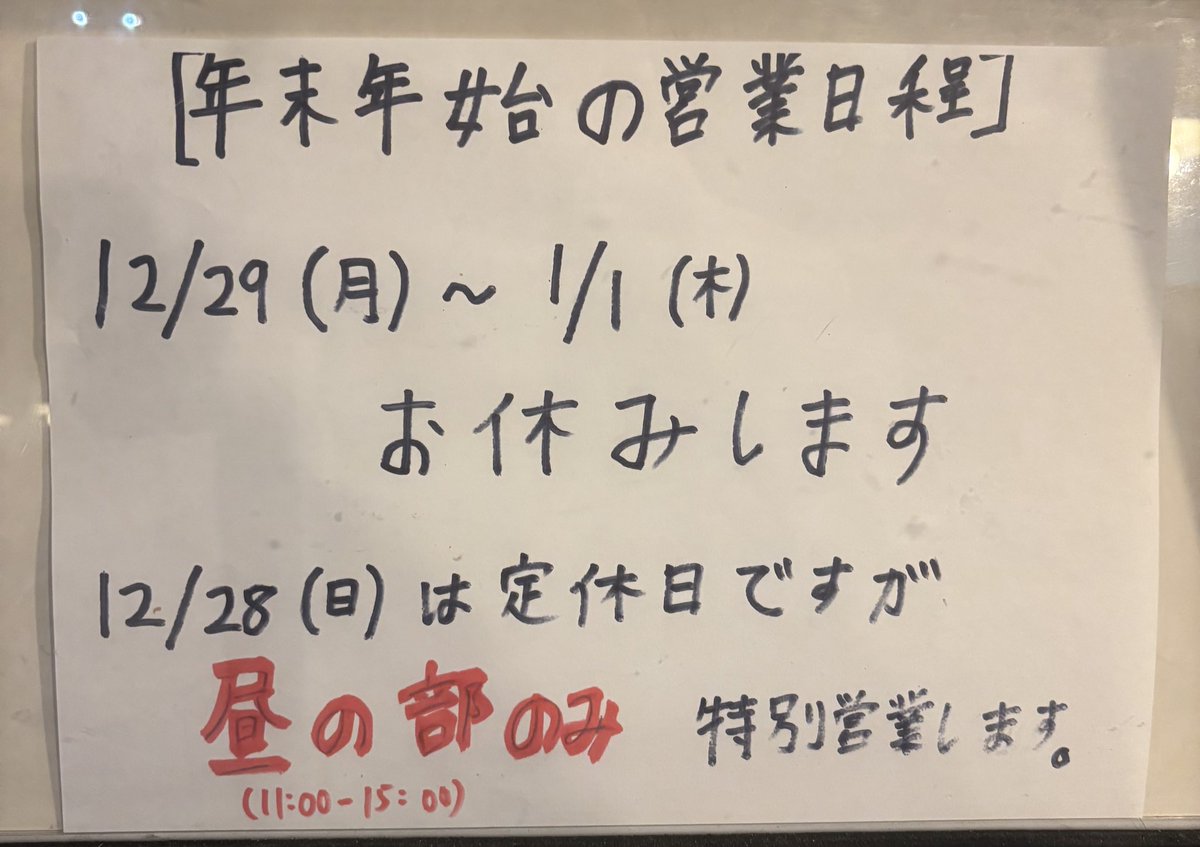 [年末年始の営業日程]
12/29(月)~ 1/1(木)
お休みします
12/28(日)は定休日ですが
昼の部のみ 特別営業します。
(11:00-15:00)